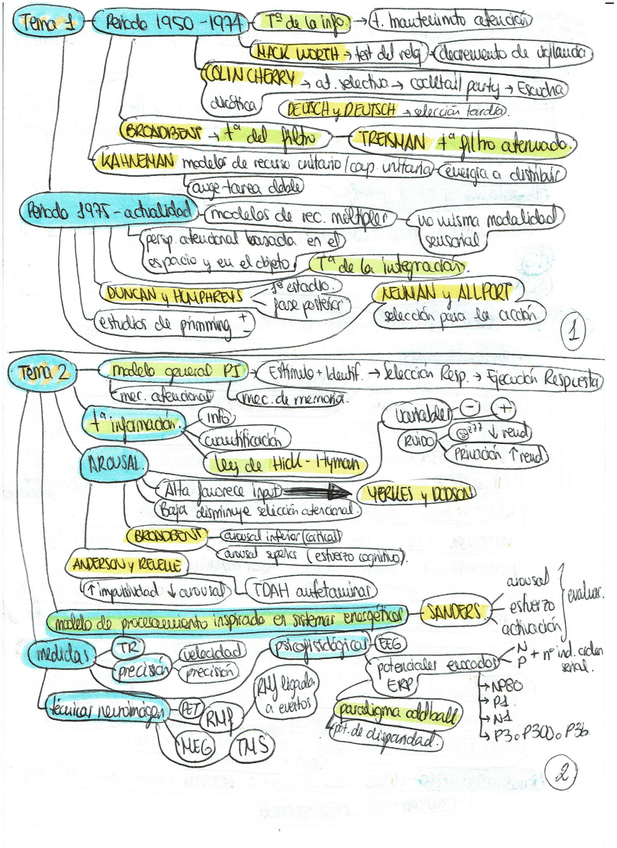 Tema 1
Periodo 1950-1974
Tª de la info → t. mantenimiento atención
MACKWORTH → test del reloj
decremento de vigilancia
COLIN CHERRY → at. selectiva → cocktail party → Escucha
dicótica
DEUTSCH y DEUTSCH → selección tardía.
BROADBENT → tª del filtro
TREISMAN tª filtro atenuado.
KAHNEMAN modelos de recurso unitario/cap. unitaria
energía a distribuir
auge-tarea doble
Periodo 1975-actualidad
modelos de rec. múltiples
no misma modalidad
sensorial
persp. atencional basada en el
espacio y en el objeto
Tª de la integración.
DUNCAN y HUMPHREYS
1º estadio.
fase posterior
NEUMAN y ALLPORT
selección para la acción
estudios de primming + -
1
Tema 2
modelo general PI → Estímulo + Identif. → Selección Resp. → Ejecución Respuesta
mec. atencional
mec. de memoria.
tª información
info
cuantificación
ley de Hick-Hyman
variables - +
RUIDO
zzz ↓ rend
Privación ↑ rend
AROUSAL
Alta favorece input
YERKES y DODSON
Baja disminuye selección atencional.
BROADBENT
arousal inferior (cortical)
arousal superior (esfuerzo cognitivo).
ANDERSON y REVELLE
↑ impulsividad ↓ arousal
TDAH anfetaminas
modelo de procesamiento inspirado en sistemas energéticos
SANDERS
arousal
esfuerzo
activación
evaluac.
medidas
TR
precisión
velocidad
precisión
psicofisiológicas
EEG
potenciales evocados
ERP
N
P
+ nº ind. orden
serial.
→ NP80
→ P1.
→ N1
→ P3 o P300 o P3b
técnicas neuroimagen
PET
RNf
RNf ligada
a eventos
MEG
TMS
paradigma oddball
pt. de disparidad.
2